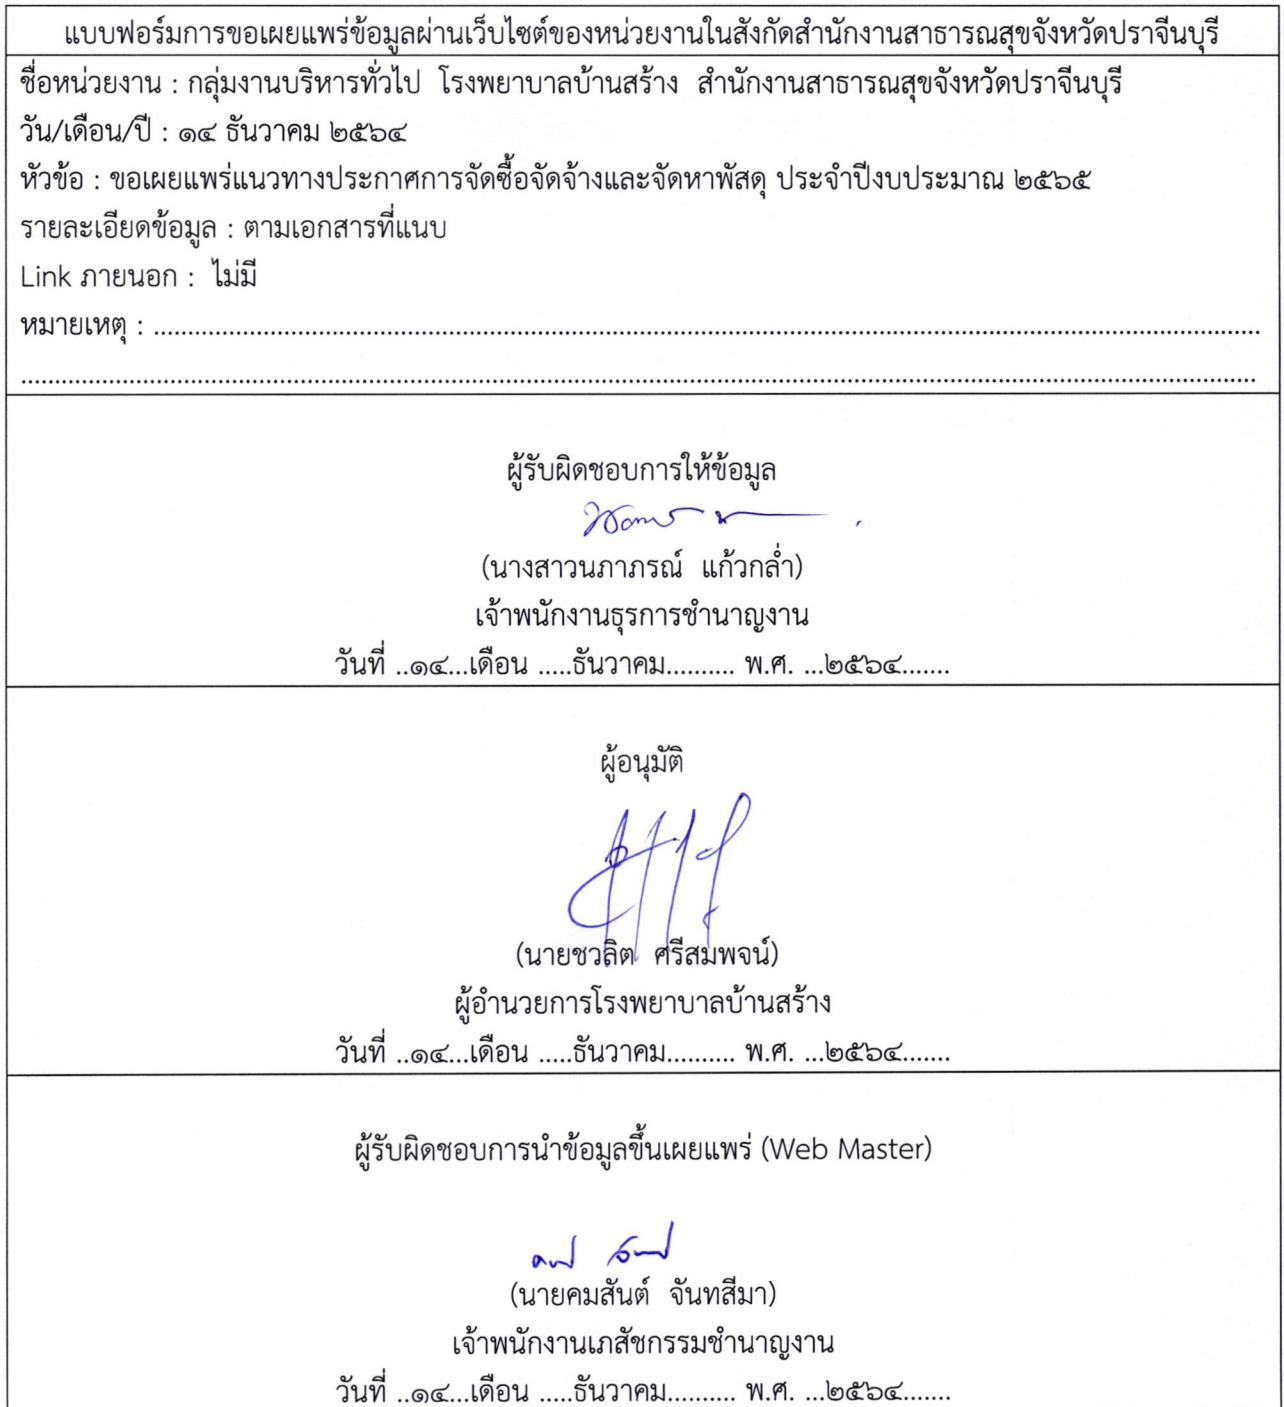 แบบฟอร์มการขอเผยแพร่ข้อมูลผ่านเว็บไซต์ของหน่วยงานในสังกัดสำนักงานสาธารณสุขจังหวัดปราจีนบุรี
ชื่อหน่วยงาน : กลุ่มงานบริหารทั่วไป โรงพยาบาลบ้านสร้าง สำนักงานสาธารณสุขจังหวัดปราจีนบุรี
วัน/เดือน/ปี : ๑๔ ธันวาคม ๒๕๖๔
หัวข้อ : ขอเผยแพร่แนวทางประกาศการจัดซื้อจัดจ้างและจัดหาพัสดุ ประจำปีงบประมาณ ๒๕๖๕
รายละเอียดข้อมูล : ตามเอกสารที่แนบ
Link ภายนอก : ไม่มี
หมายเหตุ : ........................................................................................................................
........................................................................................................................
ผู้รับผิดชอบการให้ข้อมูล
(นางสาวนภาภรณ์ แก้วกล่ำ)
เจ้าพนักงานธุรการชำนาญงาน
วันที่ ..๑๔...เดือน .....ธันวาคม.......... พ.ศ. ...๒๕๖๔.......
ผู้อนุมัติ
(นายชวลิต ศรีสมพจน์)
ผู้อำนวยการโรงพยาบาลบ้านสร้าง
วันที่ ..๑๔...เดือน .....ธันวาคม.......... พ.ศ. ...๒๕๖๔.......
ผู้รับผิดชอบการนำข้อมูลขึ้นเผยแพร่ (Web Master)
(นายคมสันต์ จันทสีมา)
เจ้าพนักงานเภสัชกรรมชำนาญงาน
วันที่ ..๑๔...เดือน .....ธันวาคม.......... พ.ศ. ...๒๕๖๔.......